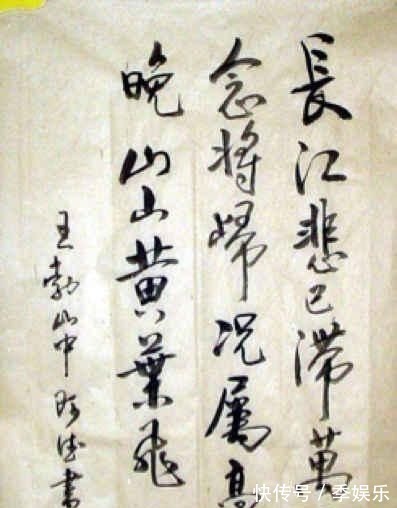 長江悲已滯萬
念將歸況屬高
晚山山黄葉飛
王勃山中書
快传号 / 季娱乐